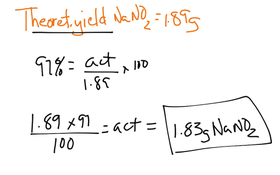 Theoret. yield NaNO₂ = 1.89g
97% = act/1.89 × 100
1.89 × 97/100 = act = 1.83g NaNO₂